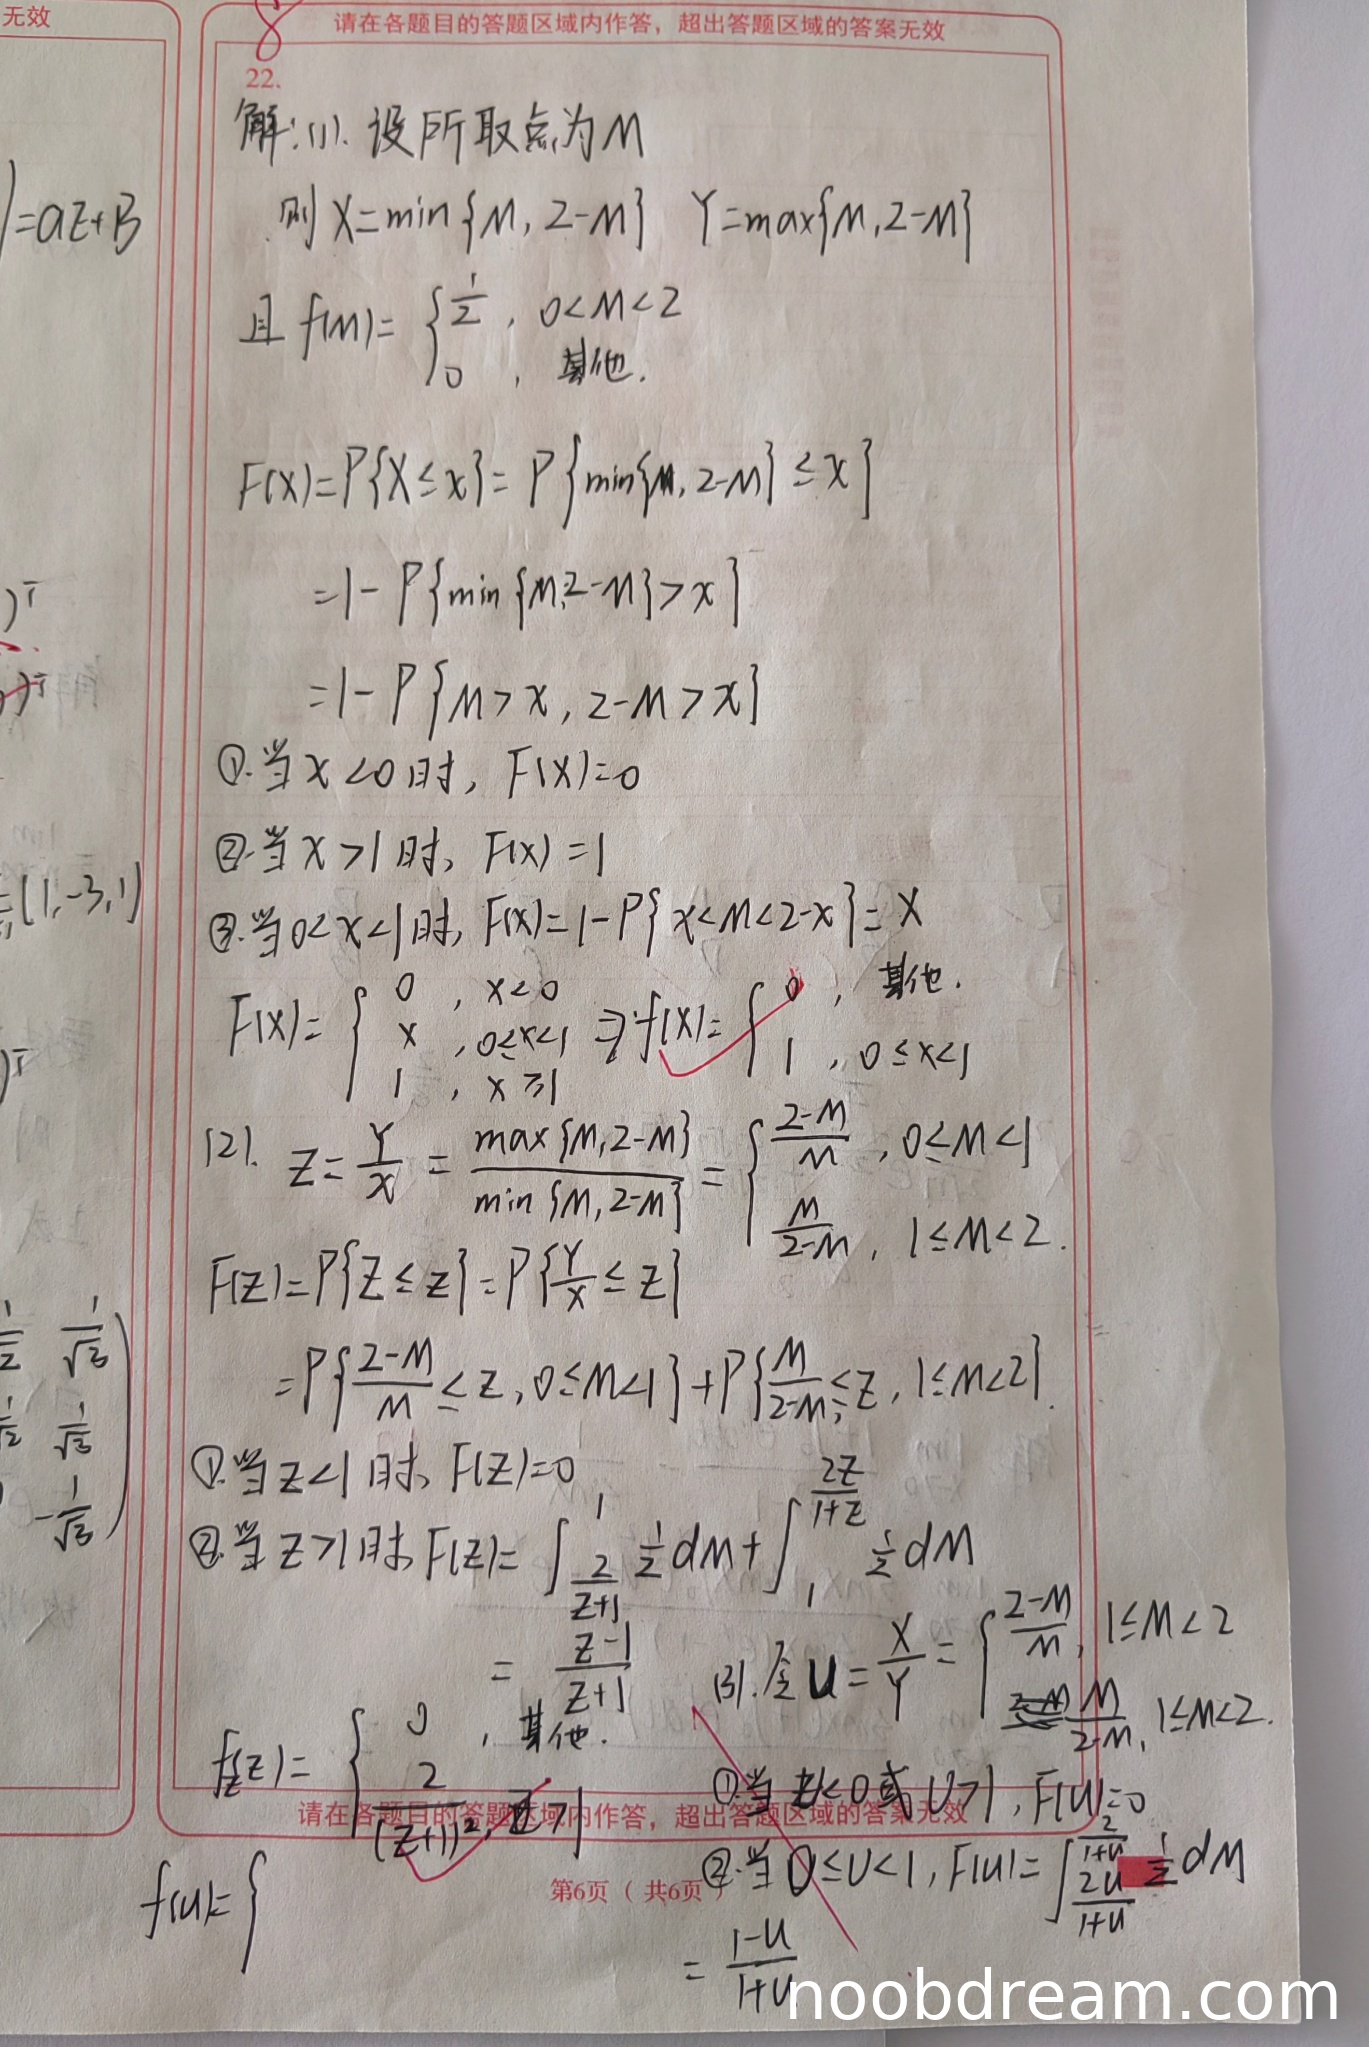 无效
8
请在各题目的答题区域内作答，超出答题区域的答案无效
22.
解:(1). 设所取点为M
则 X=min{M, 2-M} Y=max{M,2-M}
且 f(M)= { 1/2 , 0<M<2
0 , 其他.
F(X)=P{X≤x}= P{min{M, 2-M} ≤x}
=1- P{min{M,2-M}>x}
=1- P{M>x, 2-M>x}
①.当x<0时, F(X)=0
②.当x>1时, F(X)=1
③.当0<x<1时, F(X)=1-P{x<M<2-x}=X
F(X)= { 0 , x<0
x , 0≤x<1
1 , x≥1
⇒ f(X)= { 0 , 其他.
1 , 0≤x<1
(2). Z= Y/X = max{M,2-M}/min{M,2-M} = { (2-M)/M , 0≤M<1
M/(2-M) , 1≤M<2.
F(Z)=P{Z≤z}=P{Y/X≤z}
=P{(2-M)/M ≤z, 0≤M<1}+P{M/(2-M)≤z, 1≤M<2}.
①.当z<1时, F(Z)=0
②.当z>1时, F(Z)= ∫_{2/(z+1)}^{1} 1/2 dM+ ∫_{1}^{2z/(1+z)} 1/2 dM
= (z-1)/(z+1)
f(z)= { 0 , 其他.
2/(z+1)², z>1
(3).令U= X/Y = { (2-M)/M, 1≤M<2
M/(2-M), 1≤M<2.
①.当U<0或U>1, F(U)=0
②.当0≤U<1, F(U)= ∫_{2u/(1+u)}^{2/(1+u)} 1/2 dM
= (1-u)/(1+u)
f(u)= {
请在各题目的答题区域内作答，超出答题区域的答案无效
第6页（共6页）
)=aZ+B
)ᵀ
)ᵀ
=(1,-3,1)
)ᵀ
1/√3
1/√3
-1/√3
noobdream.com